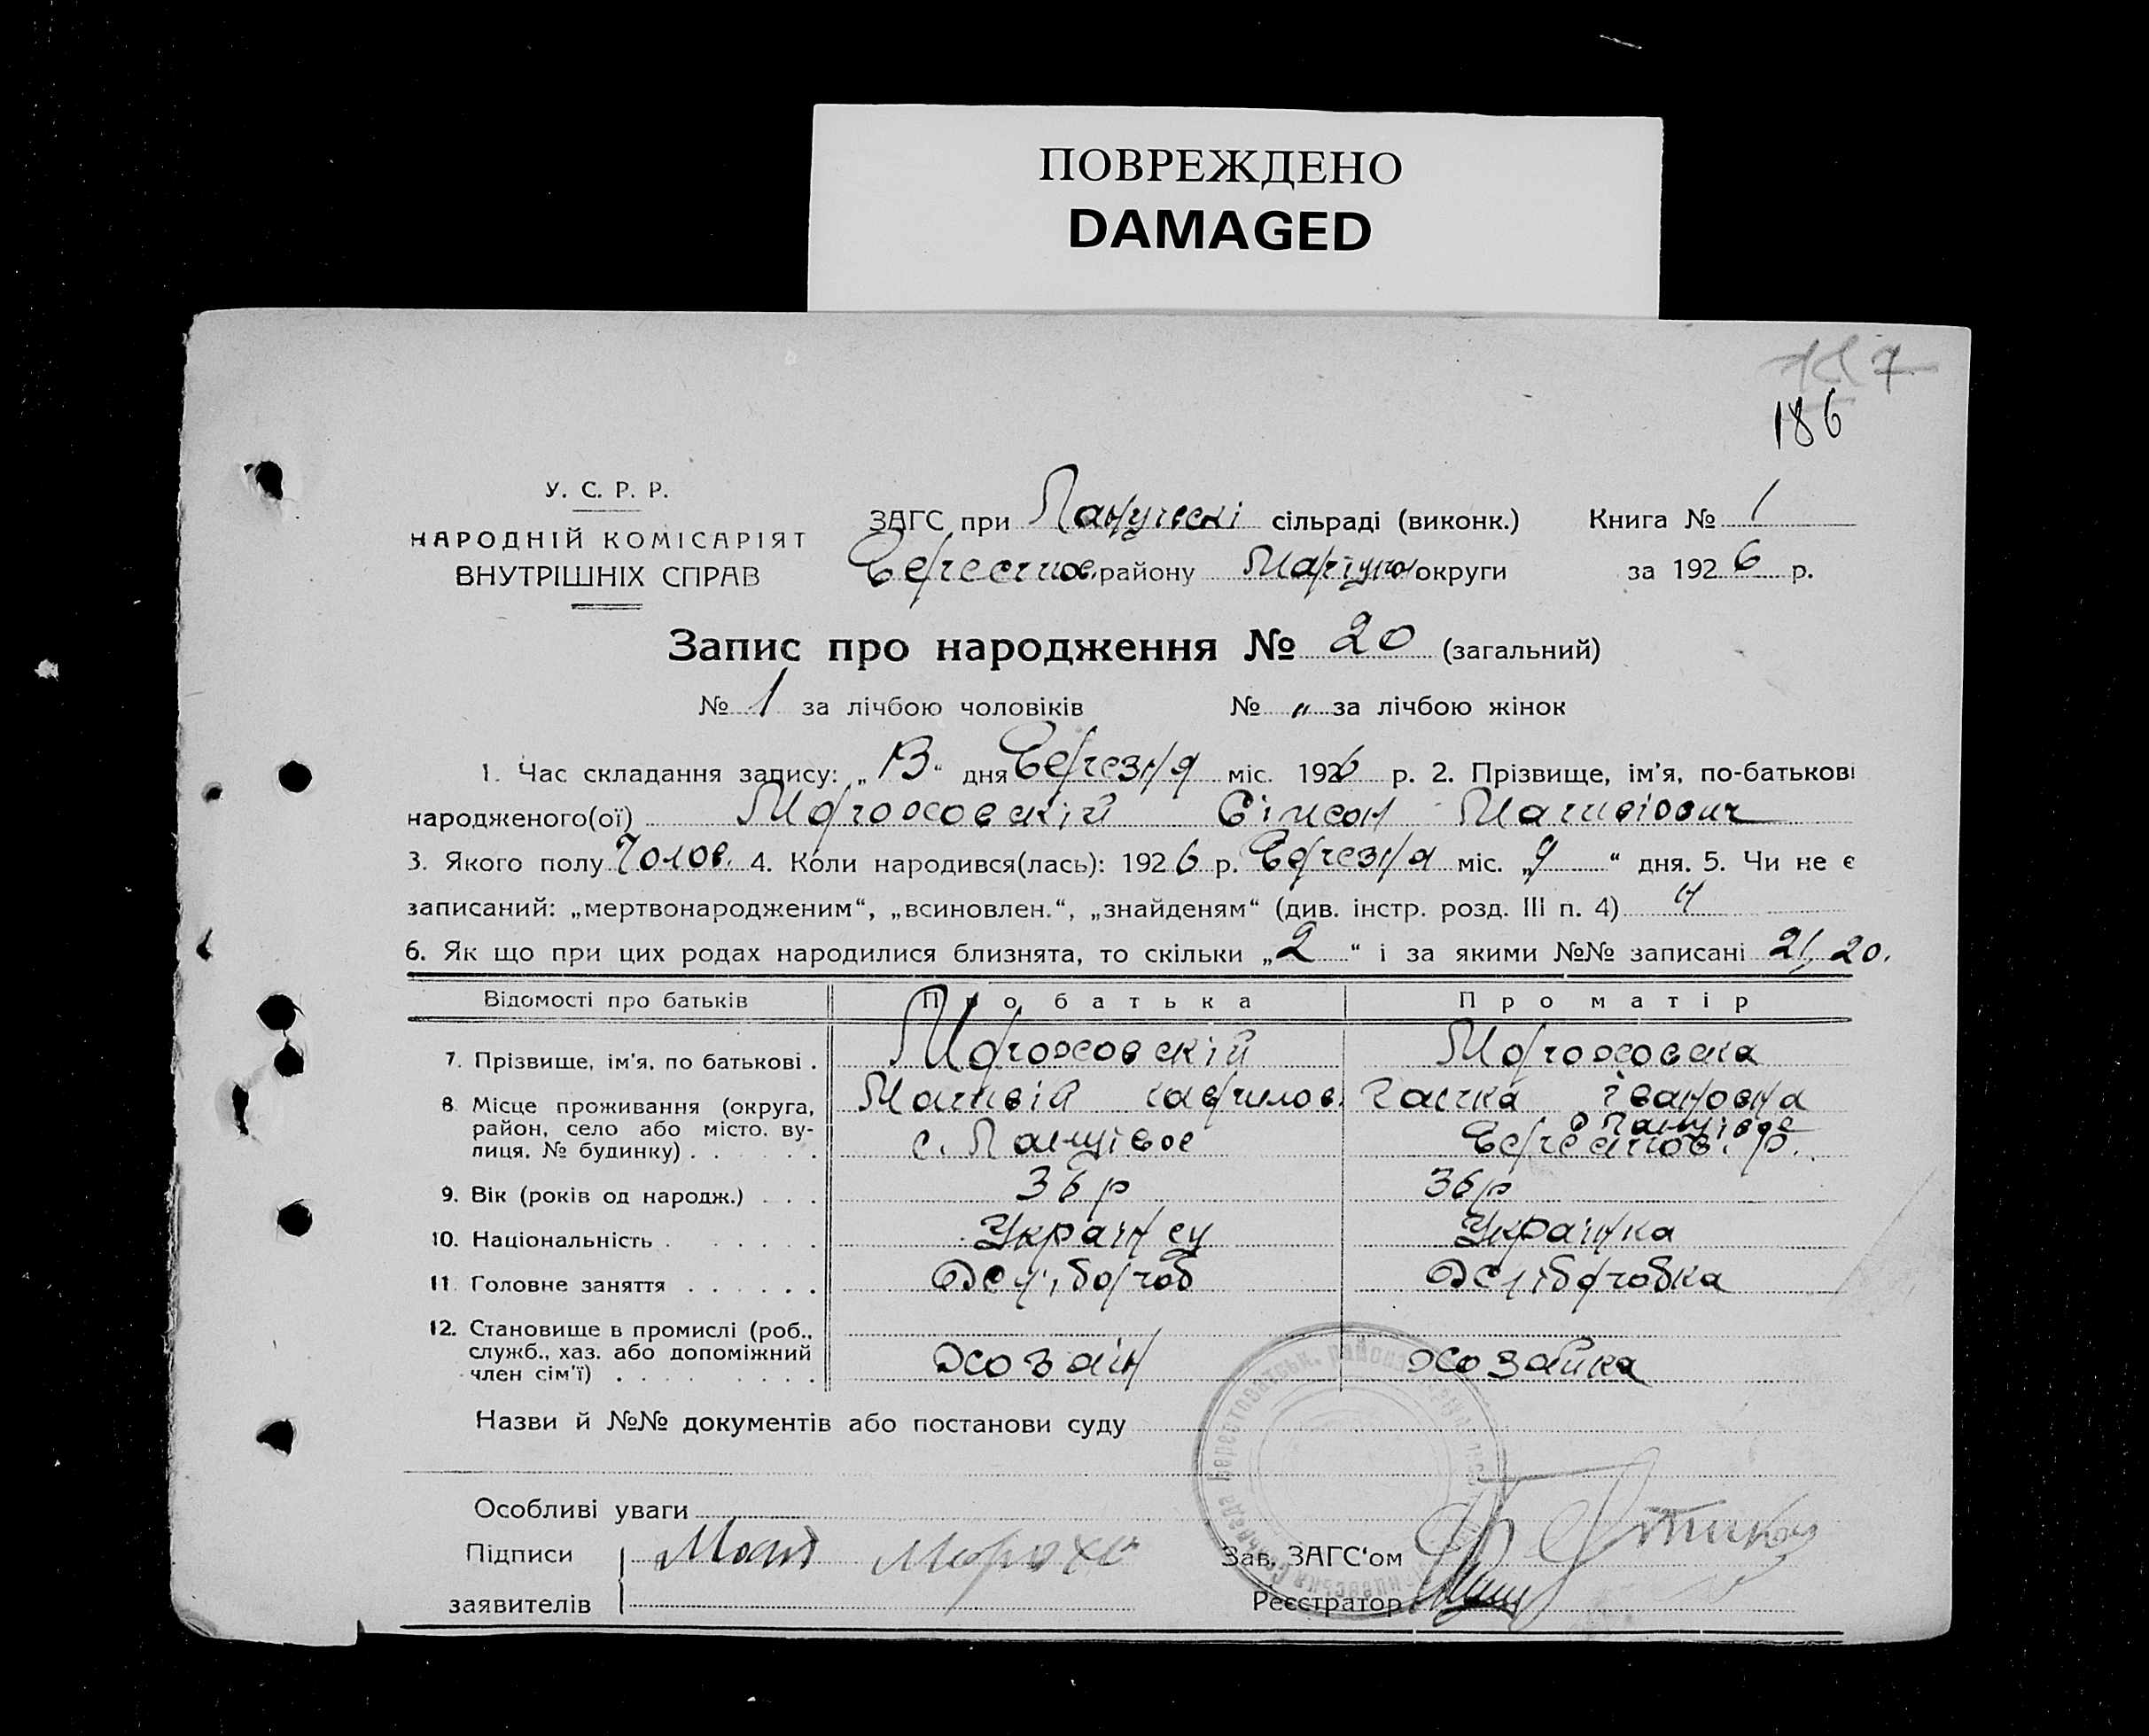 ПОВРЕЖДЕНО
DAMAGED
7
186
У. С. Р. Р.
НАРОДНІЙ КОМІСАРІЯТ
ВНУТРІШНІХ СПРАВ
ЗАГС при сільраді (виконк.) Книга № 1
району округи за 1926 р.
Запис про народження № 20 (загальний)
№ 1 за лічбою чоловіків № „ за лічбою жінок
1. Час складання запису: „13“ дня Березня міс. 1926 р. 2. Прізвище, ім'я, по-батькові
народженого(ої) Мороховскій Сімеон Матвійович
3. Якого полу Чолов. 4. Коли народився(лась): 1926 р. Березня міс. „9“ дня. 5. Чи не є
записаний: „мертвонародженим“, „всиновлен.“, „знайденям“ (див. інстр. розд. III п. 4) н
6. Як що при цих родах народилися близнята, то скільки „2“ і за якими №№ записані 21, 20.
Відомості про батьків Про батька Про матір
7. Прізвище, ім'я, по батькові . Мороховскій Мороховска
Матвій Гаврилов. Ганка Івановна
8. Місце проживання (округа, район, село або місто, вулиця, № будинку) . . . . . . с. Берестов. р.
9. Вік (років од народж.) . . . 36 р 36 р
10. Національність . . . . . Українец Українка
11. Головне заняття . . . . . . Хлібороб Хліборобка
12. Становище в промислі (роб., служб., хаз. або допоміжний член сім'ї) . . . . . . . . Хозаїн Хозайка
Назви й №№ документів або постанови суду
Особливі уваги
Підписи
заявителів
Зав. ЗАГС'ом
Реєстратор